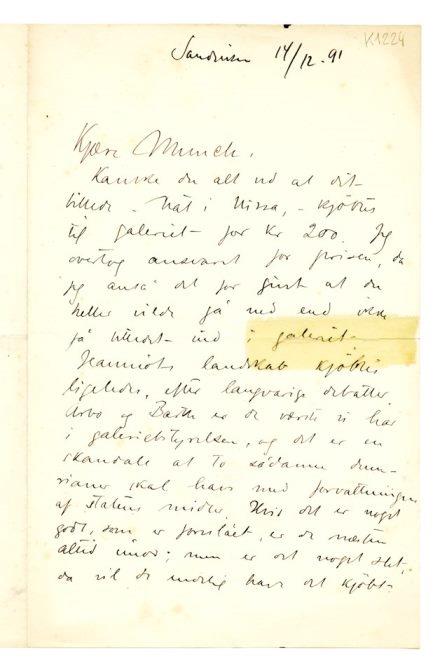 K1224
14/12-91
Kjære Munch.
Kanske du alt ved at dit
billede - Nat i Nissa, - kjöbtes
til galeriet for kr 200. Jeg
overtog ansvaret for prisen, da
jeg anså det for givet at du
heller vilde gå ned end ikke
få billedet ind i galeriet.
Jeanniots landskab kjöbtes
ligeledes, efter langvarige debatter.
Arbo og Barth er de værste vi har
i galeribestyrelsen, og det er en
skandale at to sådanne dum-
rianer skal have med forvaltningen
af statens midler. Hvis det er noget
godt, som er foreslået, er de næsten
altid imod; men er det noget slet,
da vil de endelig have det kjöbt